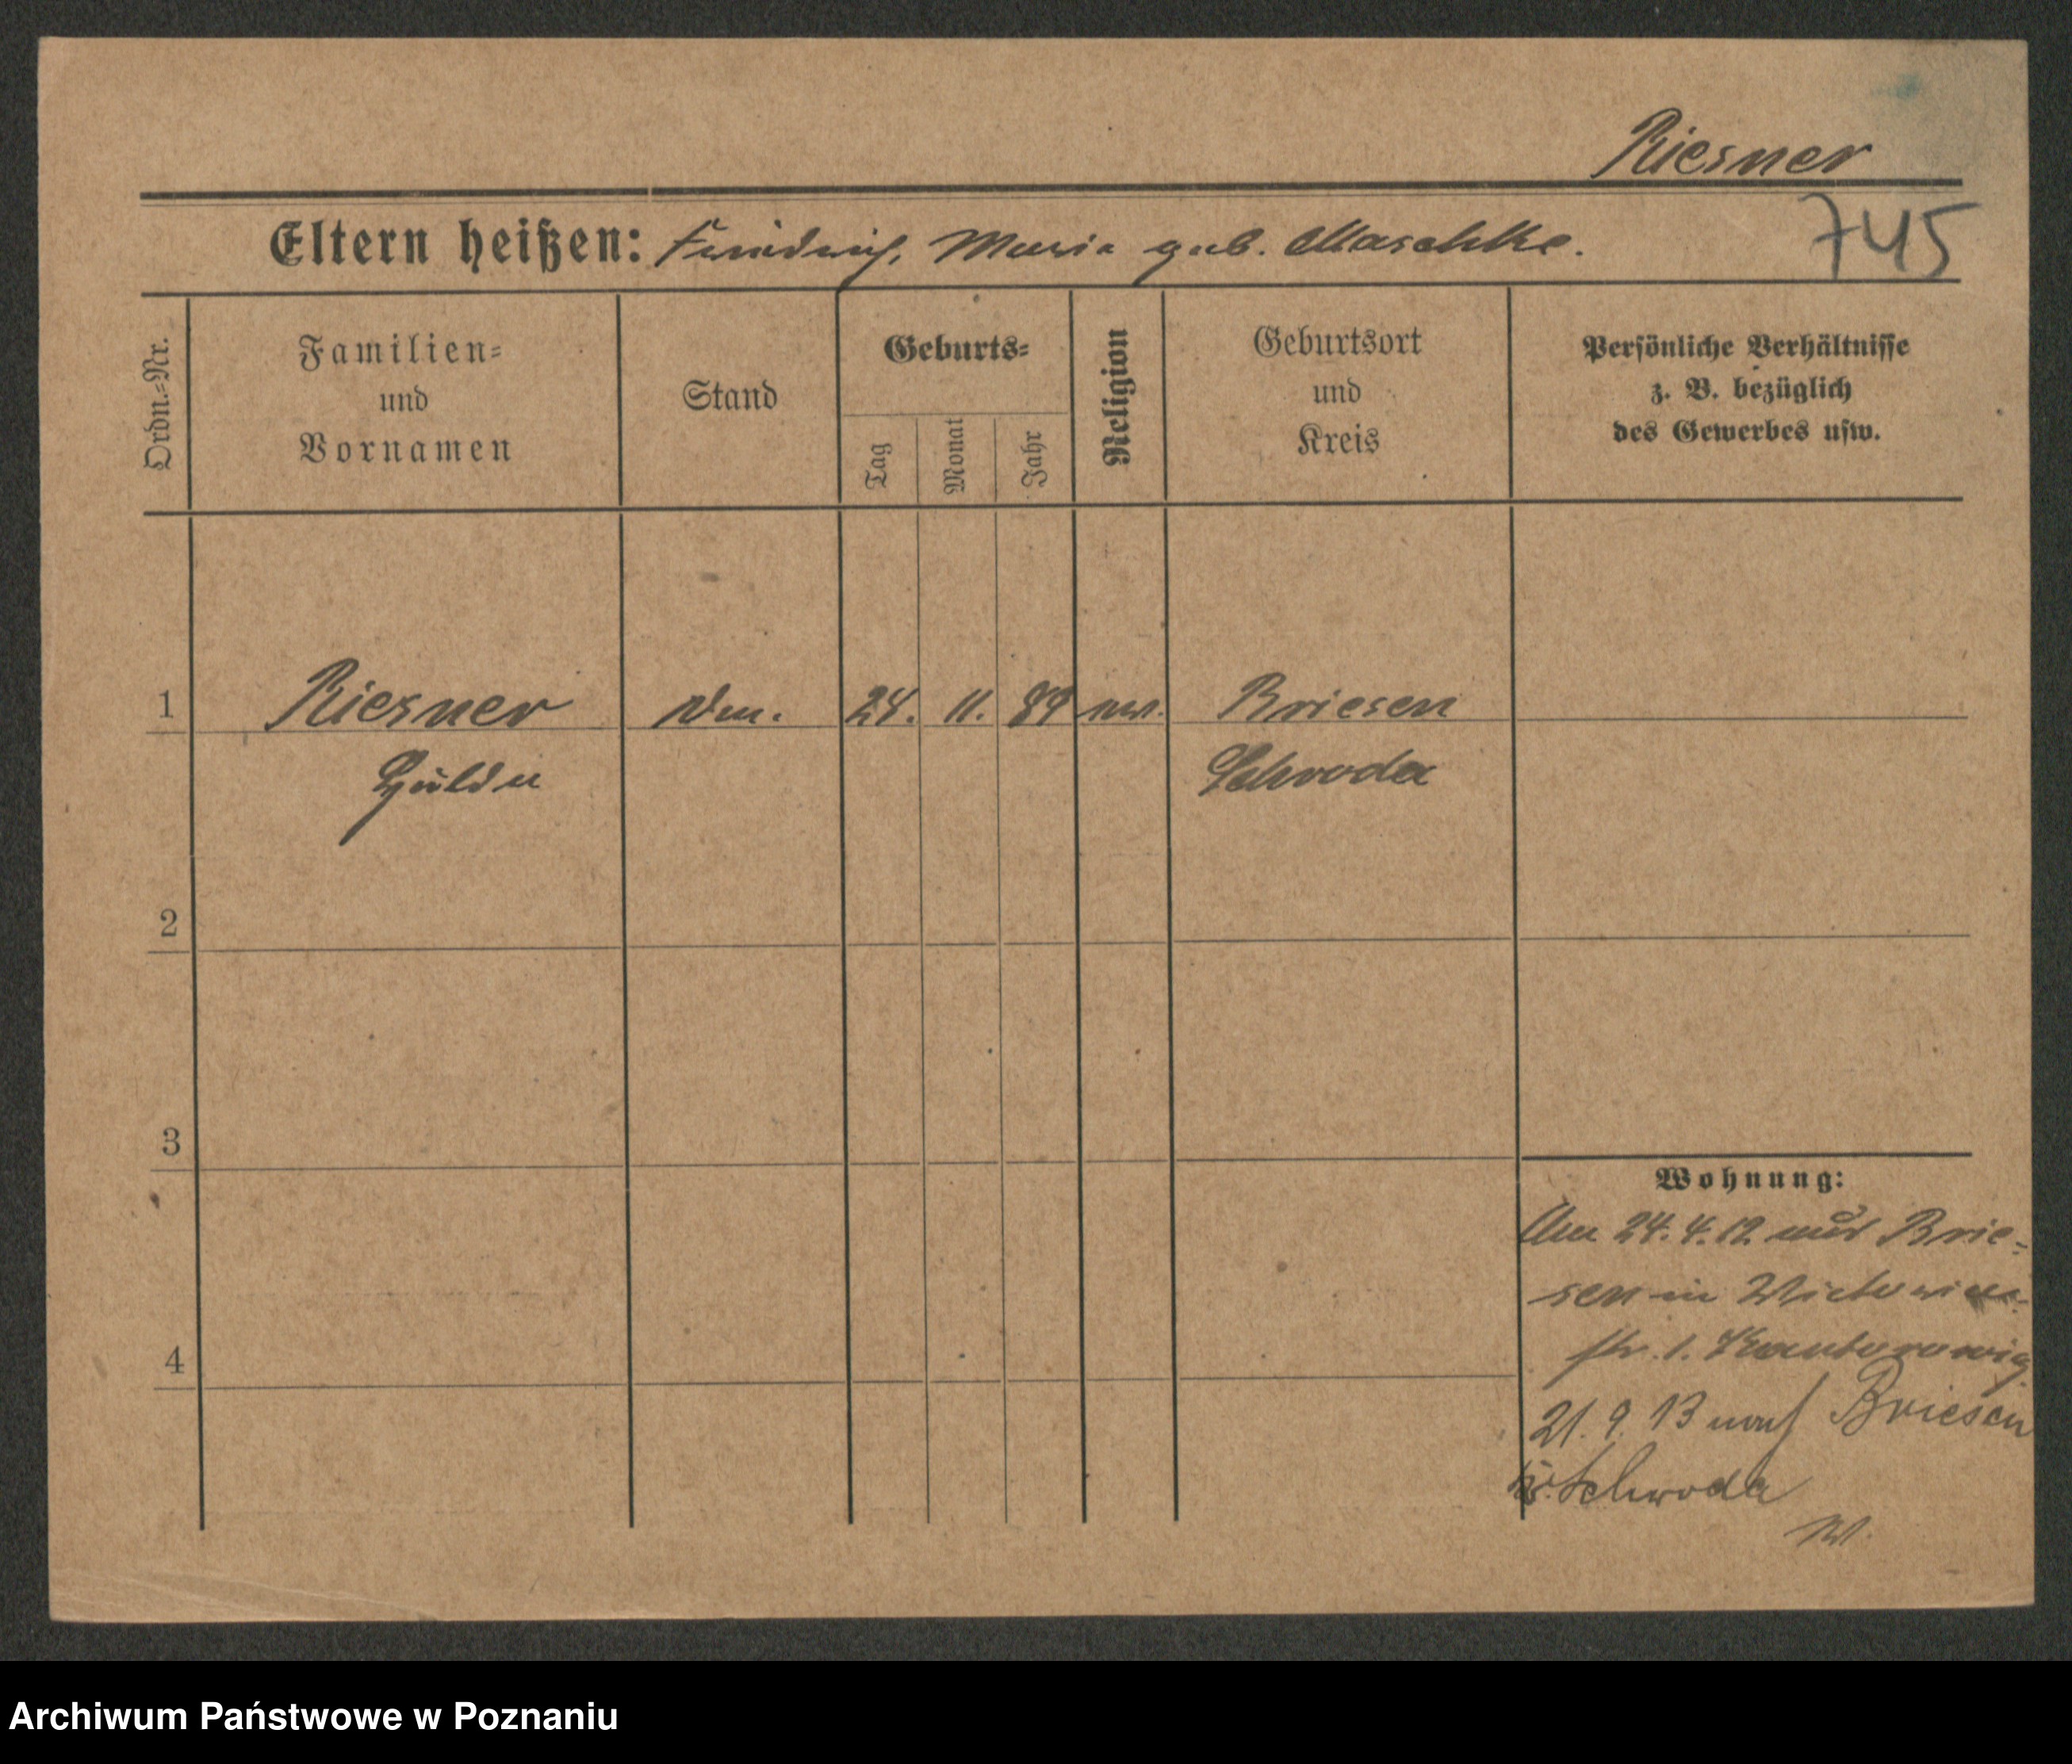 Riesner
Eltern heißen: Friedrich, Maria geb. Maschke.
745
Ordn.-Nr.
Familien-
und
Vornamen
Stand
Geburts-
Tag
Monat
Jahr
Religion
Geburtsort
und
Kreis
Persönliche Verhältnisse
z. B. bezüglich
des Gewerbes usw.
1 Riesner 24. 11. 89 Briesen
Hulda Schroda
2
3
4
Wohnung:
Am 24.4.12. aus Brie-
sen in
str. 1. Kantorowicz
21. 9. 13 nach Briesen
Kr. Schroda
W.
Archiwum Państwowe w Poznaniu